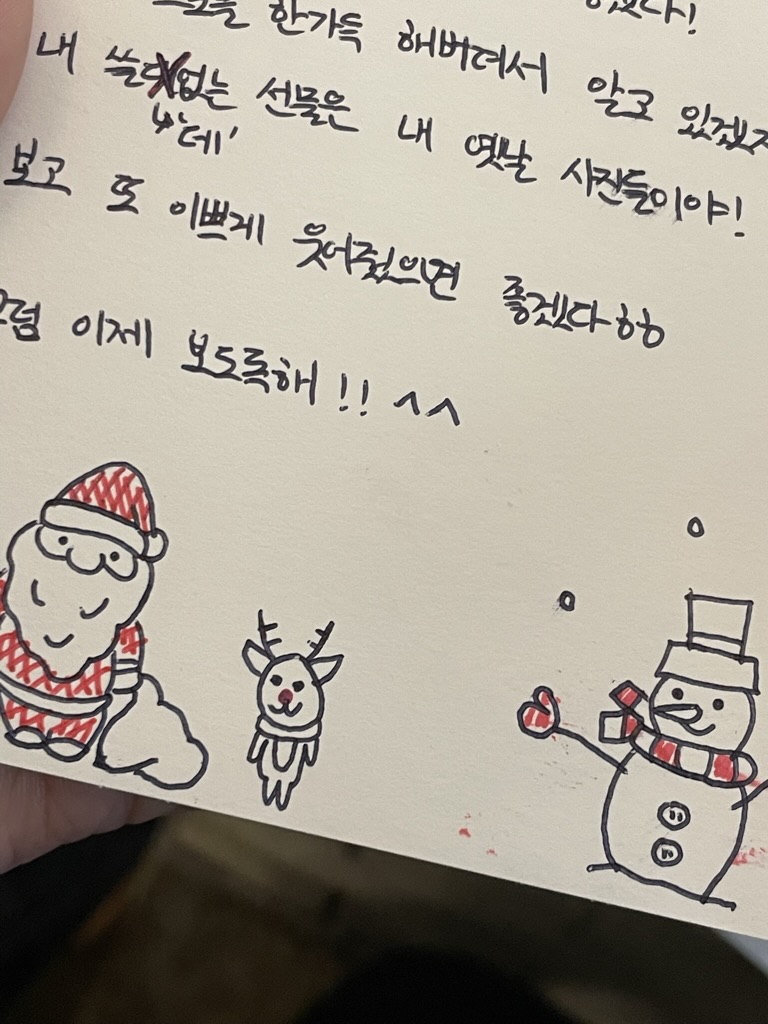 한가득 해버려서 알고 있겠지
내 쓸 없는 선물은 내 옛날 사진들이야!
'데'
보고 또 이쁘게 웃어줬으면 좋겠다ㅎㅎ
이제 보도록해!! ^^